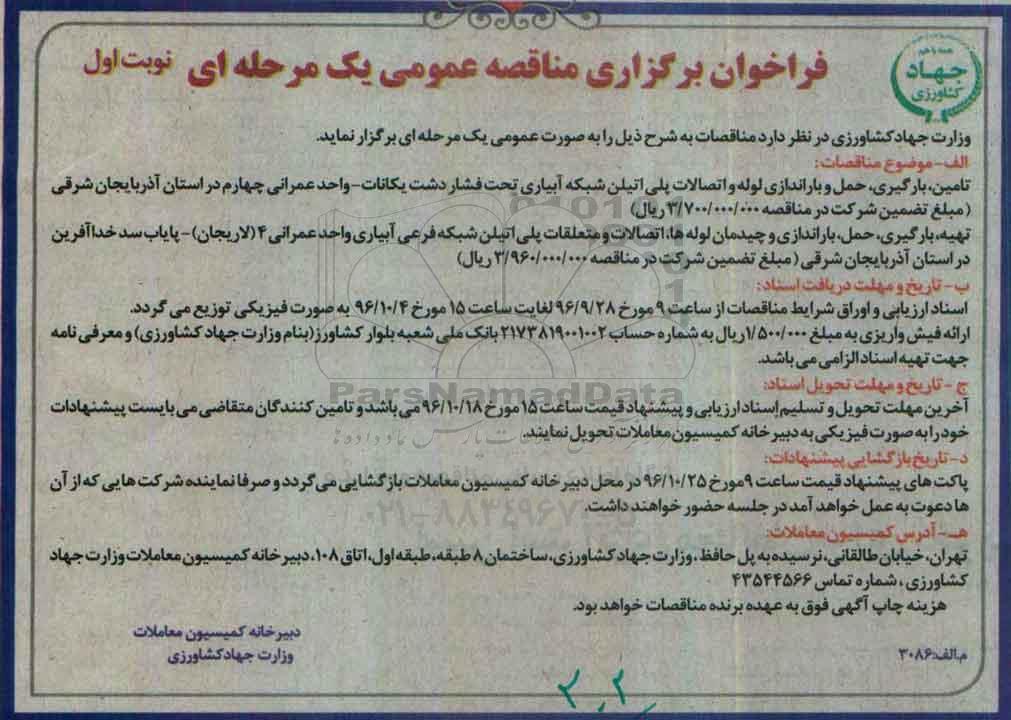 همه با هم
جهاد
کشاورزی
فراخوان برگزاری مناقصه عمومی یک مرحله ای نوبت اول
وزارت جهاد کشاورزی در نظر دارد مناقصات به شرح ذیل را به صورت عمومی یک مرحله ای برگزار نماید.
الف- موضوع مناقصات:
تامین، بارگیری، حمل و باراندازی لوله و اتصالات پلی اتیلن شبکه آبیاری تحت فشار دشت یکانات- واحد عمرانی چهارم در استان آذربایجان شرقی
(مبلغ تضمین شرکت در مناقصه ۳/۷۰۰/۰۰۰/۰۰۰ ریال)
تهیه، بارگیری، حمل، باراندازی و چیدمان لوله ها، اتصالات و متعلقات پلی اتیلن شبکه فرعی آبیاری واحد عمرانی ۴ (لاریجان)- پایاب سد خداآفرین
در استان آذربایجان شرقی (مبلغ تضمین شرکت در مناقصه ۳/۹۶۰/۰۰۰/۰۰۰ ریال)
ب- تاریخ و مهلت دریافت اسناد:
اسناد ارزیابی و اوراق شرایط مناقصات از ساعت ۹ مورخ ۹۶/۹/۲۸ لغایت ساعت ۱۵ مورخ ۹۶/۱۰/۴ به صورت فیزیکی توزیع می گردد.
ارائه فیش واریزی به مبلغ ۱/۵۰۰/۰۰۰ریال به شماره حساب ۲۱۷۳۸۱۹۰۰۱۰۰۲ بانک ملی شعبه بلوار کشاورز(بنام وزارت جهاد کشاورزی) و معرفی نامه
جهت تهیه اسناد الزامی می باشد.
ج- تاریخ و مهلت تحویل اسناد:
آخرین مهلت تحویل و تسلیم اسناد ارزیابی و پیشنهاد قیمت ساعت ۱۵ مورخ ۹۶/۱۰/۱۸ می باشد و تامین کنندگان متقاضی می بایست پیشنهادات
خود را به صورت فیزیکی به دبیرخانه کمیسیون معاملات تحویل نمایند.
د- تاریخ بازگشایی پیشنهادات:
پاکت های پیشنهاد قیمت ساعت ۹ مورخ ۹۶/۱۰/۲۵ در محل دبیرخانه کمیسیون معاملات بازگشایی می گردد و صرفا نماینده شرکت هایی که از آن
ها دعوت به عمل خواهد آمد در جلسه حضور خواهند داشت.
هـ- آدرس کمیسیون معاملات:
تهران، خیابان طالقانی، نرسیده به پل حافظ، وزارت جهاد کشاورزی، ساختمان ۸ طبقه، طبقه اول، اتاق ۱۰۸، دبیرخانه کمیسیون معاملات وزارت جهاد
کشاورزی، شماره تماس ۴۳۵۴۴۵۶۶
هزینه چاپ آگهی فوق به عهده برنده مناقصات خواهد بود.
دبیرخانه کمیسیون معاملات
وزارت جهاد کشاورزی
م.الف:۳۰۸۶
ParsNamadData
۰۲۱-۸۸۳۴۹۶۷